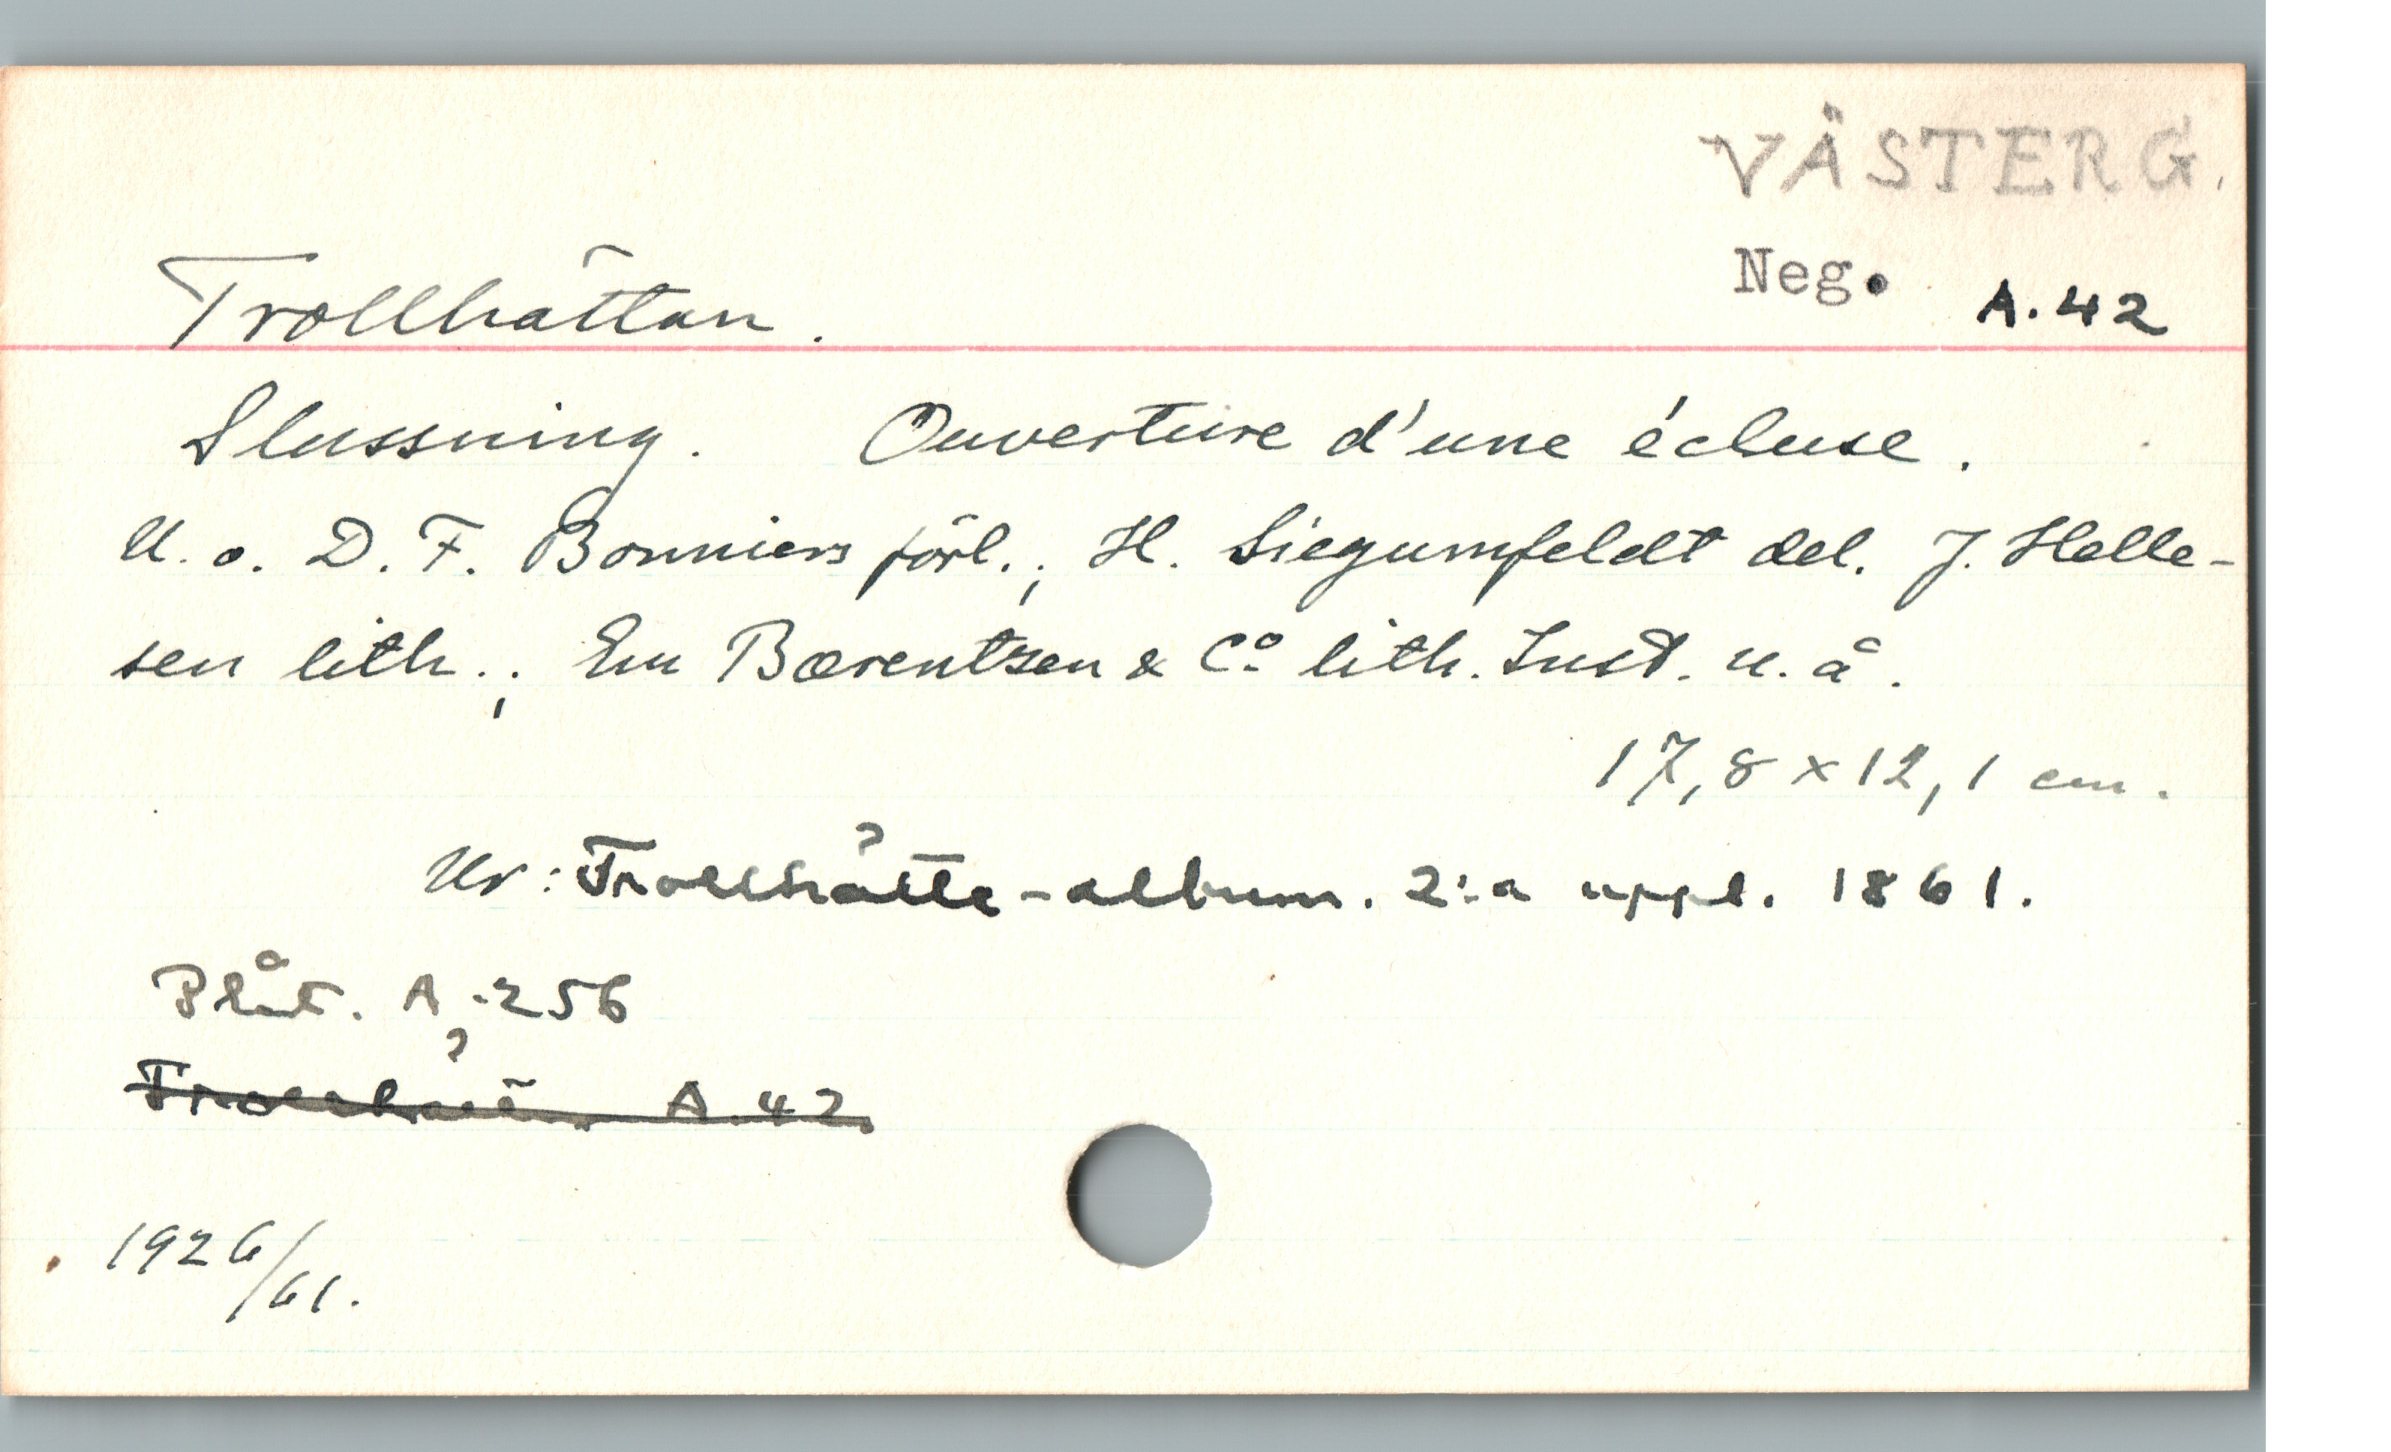 VÄSTERG.
Neg. A.42
Trollhättan.
Slussning. Ouverture d'une écluse.
U. o. D. F. Bonniers förl.; H. Siegumfeldt del. J. Helle-
sen lith.; Em Bærentzen & Co lith. Inst. u. å.
17,8 x 12,1 cm.
Ur: Trollhätte-album. 2:a uppl. 1861.
Plåt. A.256
Trollhätt. A.42
1926/61.